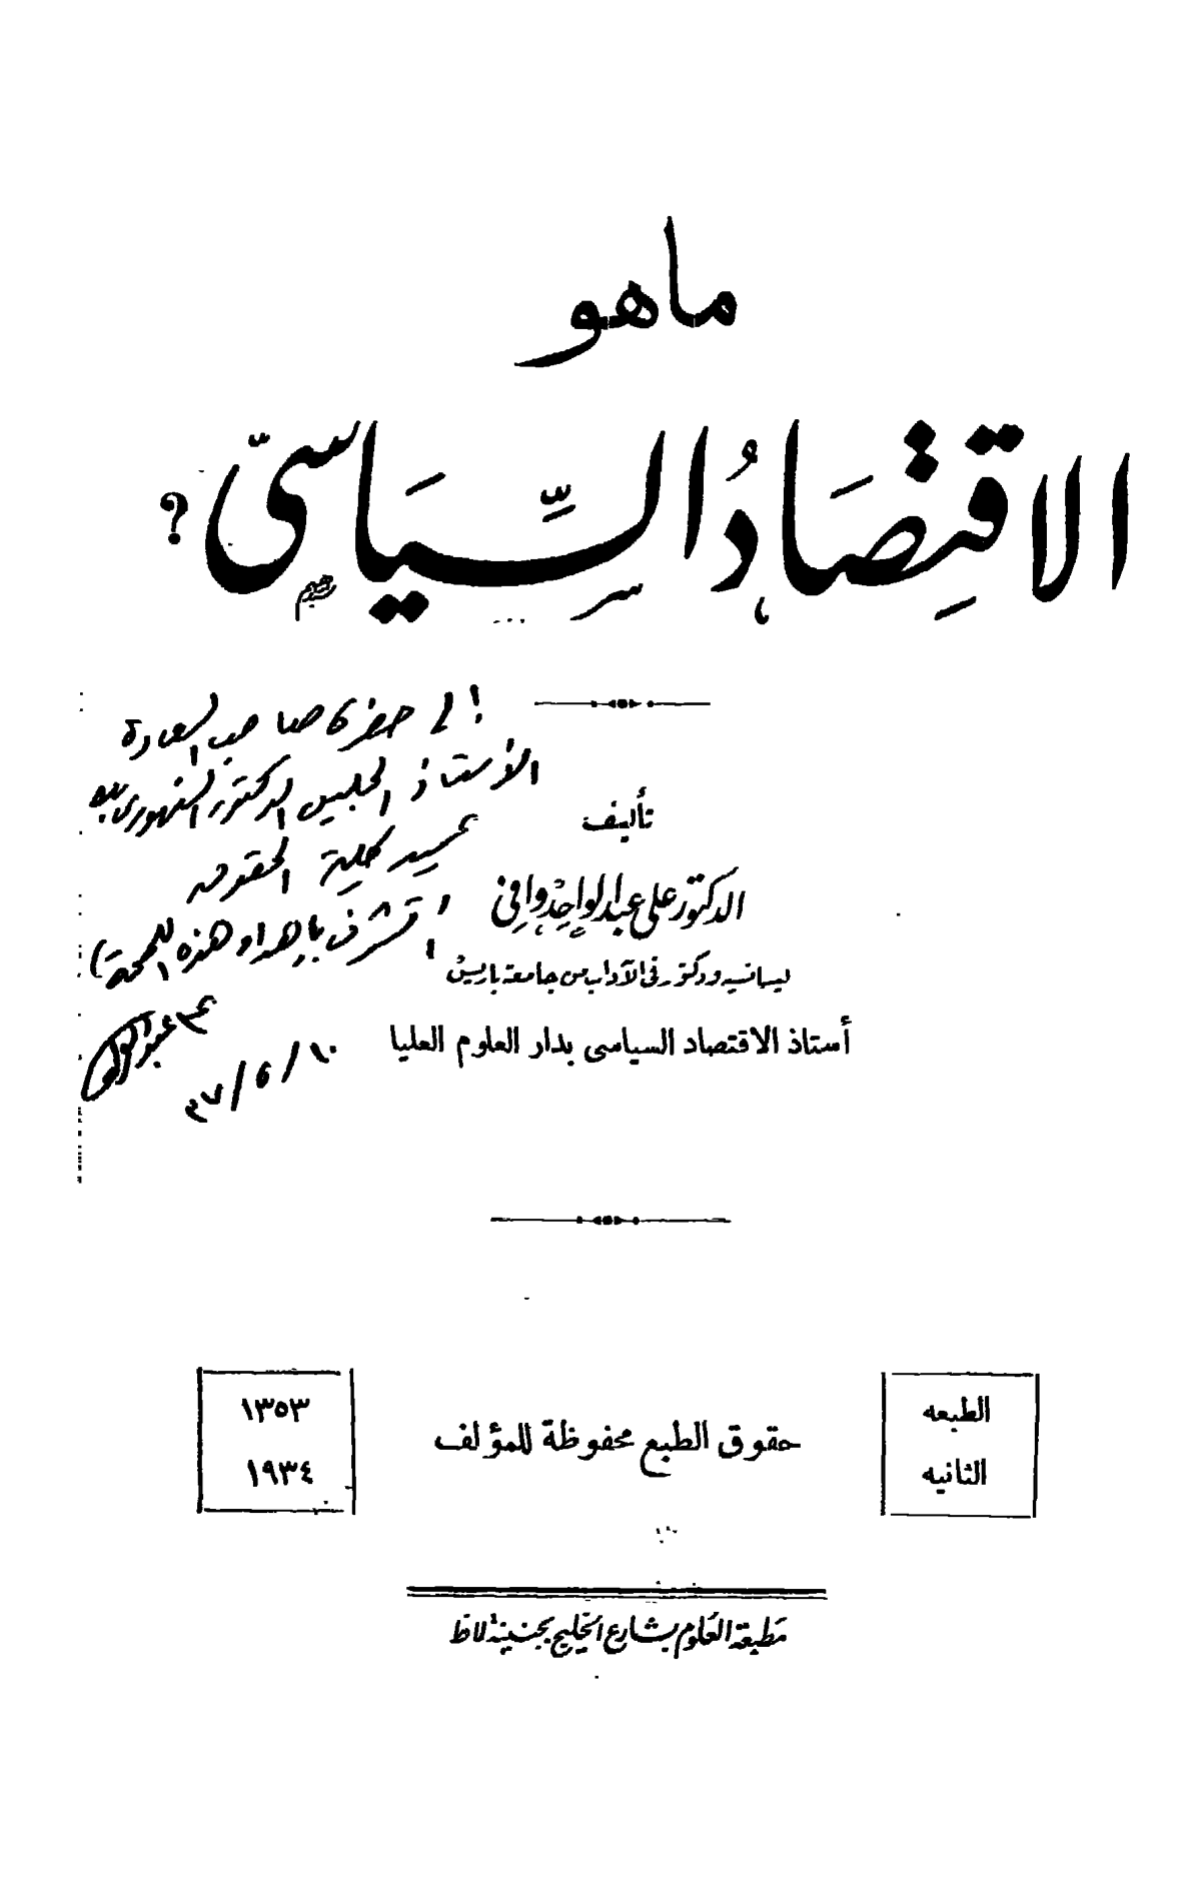 ما هو
الاقتِصَادُ السِّيَاسىّ ؟
إلى حضرة صاحب السعادة
الأستاذ الجليل الدكتور السنهورى بك
عميد كلية الحقوق
أتشرف بإهداء هذه
على عبد الواحد
١٠/٥/٣٧
تأليف
الدكتور على عبد الواحد وافى
ليسانسيه ودكتور فى الآداب من جامعة باريس
أستاذ الاقتصاد السياسى بدار العلوم العليا
الطبعه
الثانيه
حقوق الطبع محفوظة للمؤلف
١٣٥٣
١٩٣٤
مطبعة العلوم بشارع الخليج بجنينة لاظ